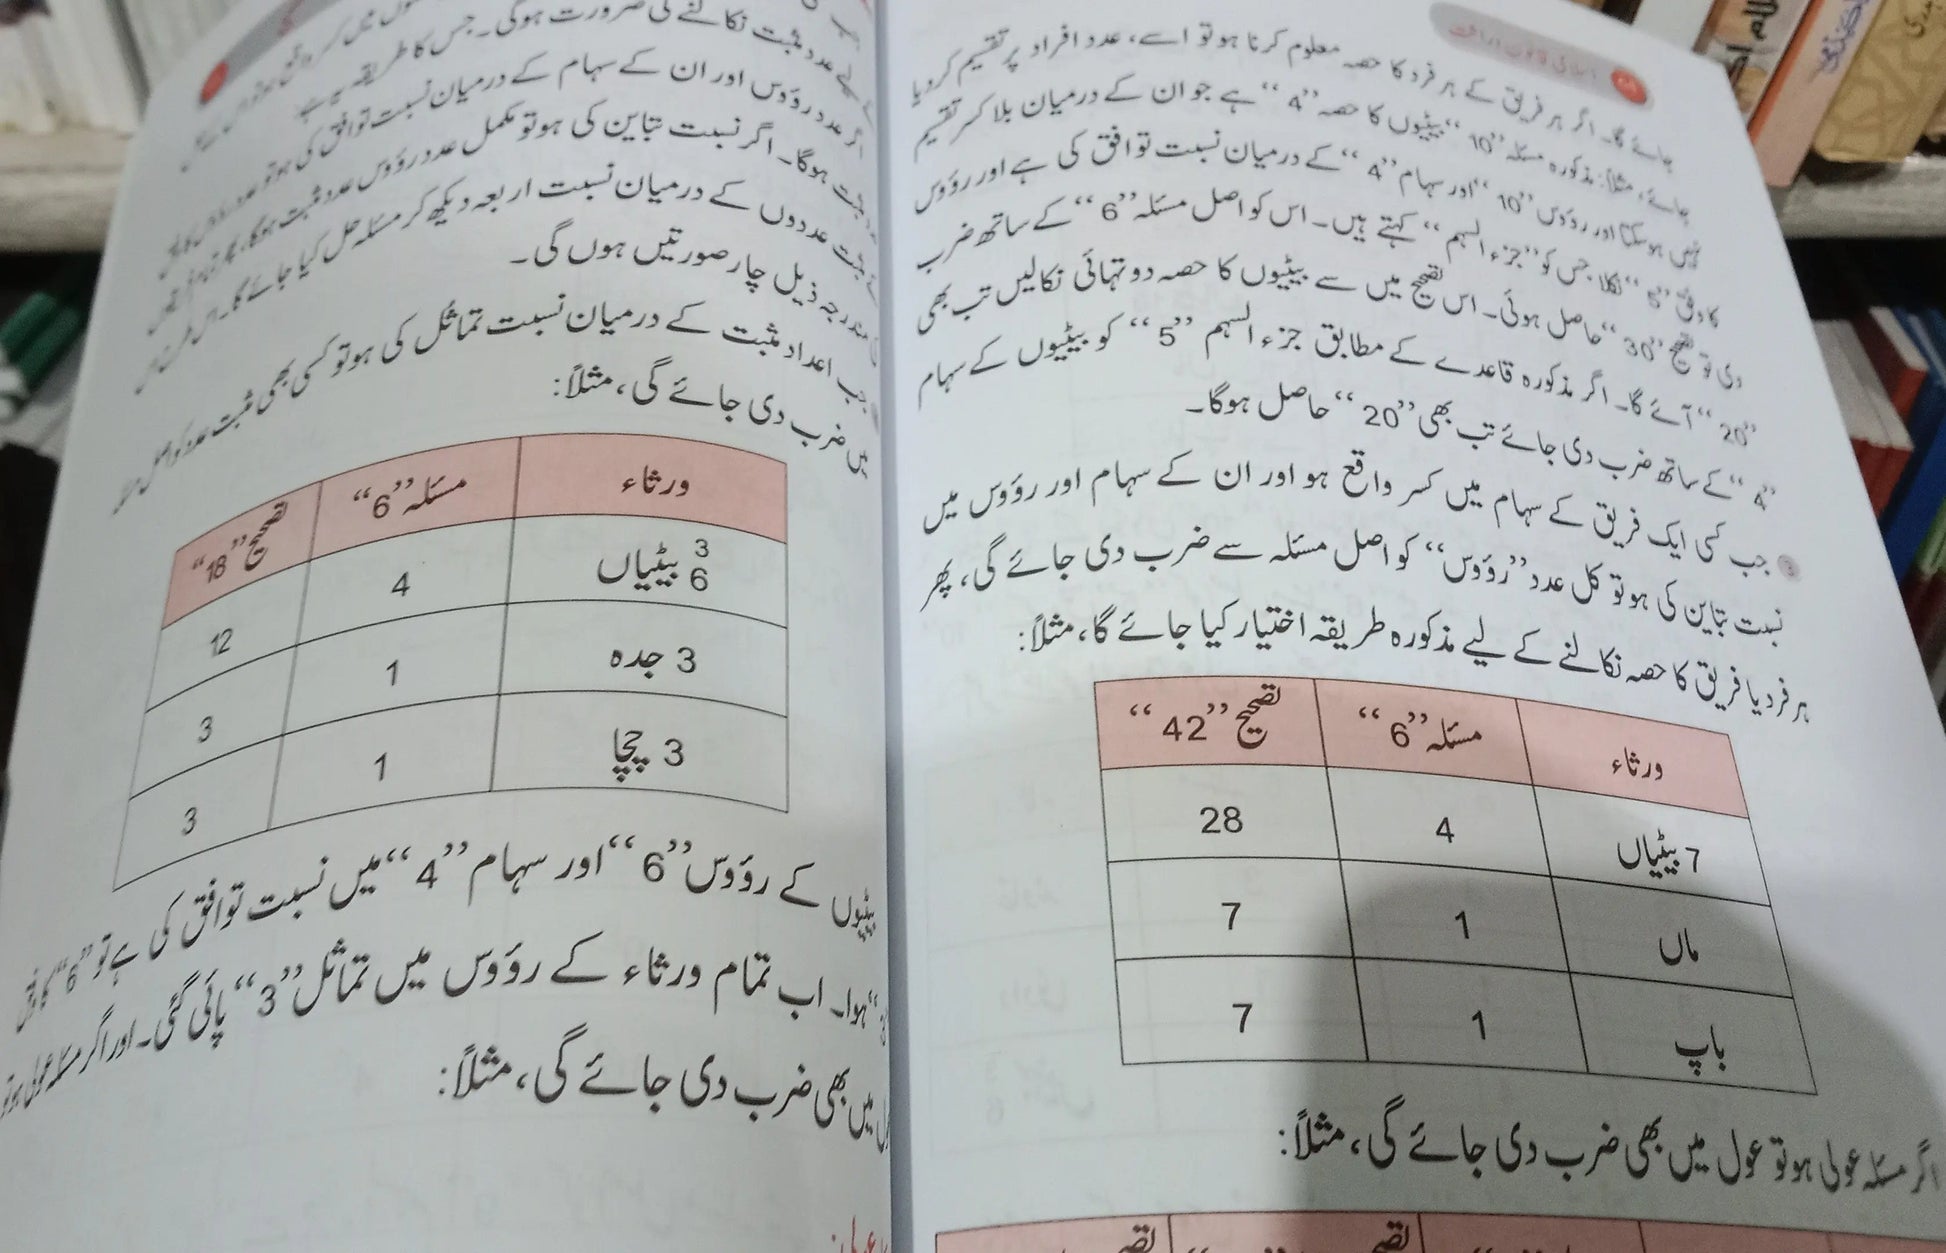 اسلامی قانون وراثت
جائے گا۔ اگر ہر فریق کے ہر فرد کا حصہ معلوم کرنا ہو تو اسے، عدد افراد پر تقسیم کر دیا
جائے، مثلاً: مذکورہ مسئلہ ”10“ بیٹیوں کا حصہ ”4“ ہے جو ان کے درمیان بلا کسر تقسیم
نہیں ہو سکتا اور رؤوس ”10“ اور سہام ”4“ کے درمیان نسبت توافق کی ہے اور رؤوس
کا وفق ”5“ نکلا جس کو ”جزء السہم“ کہتے ہیں۔ اس کو اصل مسئلہ ”6“ کے ساتھ ضرب
دی تو تصحیح ”30“ حاصل ہوئی۔ اس تصحیح میں سے بیٹیوں کا حصہ دو تہائی نکالیں تب بھی
”20“ آئے گا۔ اگر مذکورہ قاعدے کے مطابق جزء السہم ”5“ کو بیٹیوں کے سہام
”4“ کے ساتھ ضرب دی جائے تب بھی ”20“ حاصل ہوگا۔
جب کسی ایک فریق کے سہام میں کسر واقع ہو اور ان کے سہام اور رؤوس میں
نسبت تباین کی ہو تو کل عدد ”رؤوس“ کو اصل مسئلہ سے ضرب دی جائے گی، پھر
ہر فرد یا فریق کا حصہ نکالنے کے لیے مذکورہ طریقہ اختیار کیا جائے گا، مثلاً:
ورثاء مسئلہ ”6“ تصحیح ”42“
7 بیٹیاں 4 28
ماں 1 7
باپ 1 7
اگر مسئلہ عولی ہو تو عول میں بھی ضرب دی جائے گی، مثلاً:
لیے عدد مثبت نکالنے کی ضرورت ہوگی۔ جس کا طریقہ یہ ہے:
اگر عدد رؤوس اور ان کے سہام کے درمیان نسبت توافق کی ہو تو عدد رؤوس کا وفق
مثبت ہوگا۔ اگر نسبت تباین کی ہو تو مکمل عدد رؤوس عدد مثبت ہوگا،
مثبت عددوں کے درمیان نسبت اربعہ دیکھ کر مسئلہ حل کیا جائے گا۔ اس طرح
مندرجہ ذیل چار صورتیں ہوں گی۔
جب اعداد مثبت کے درمیان نسبت تماثل کی ہو تو کسی بھی مثبت عدد کو اصل مسئلہ
میں ضرب دی جائے گی، مثلاً:
ورثاء مسئلہ ”6“ تصحیح ”18“
3
6 بیٹیاں 4 12
3 جدہ 1 3
3 چچا 1 3
بیٹیوں کے رؤوس ”6“ اور سہام ”4“ میں نسبت توافق کی ہے تو ”6“ کا وفق
”3“ ہوا۔ اب تمام ورثاء کے رؤوس میں تماثل ”3“ پائی گئی۔ اور اگر مسئلہ عولی ہو تو
میں بھی ضرب دی جائے گی، مثلاً: